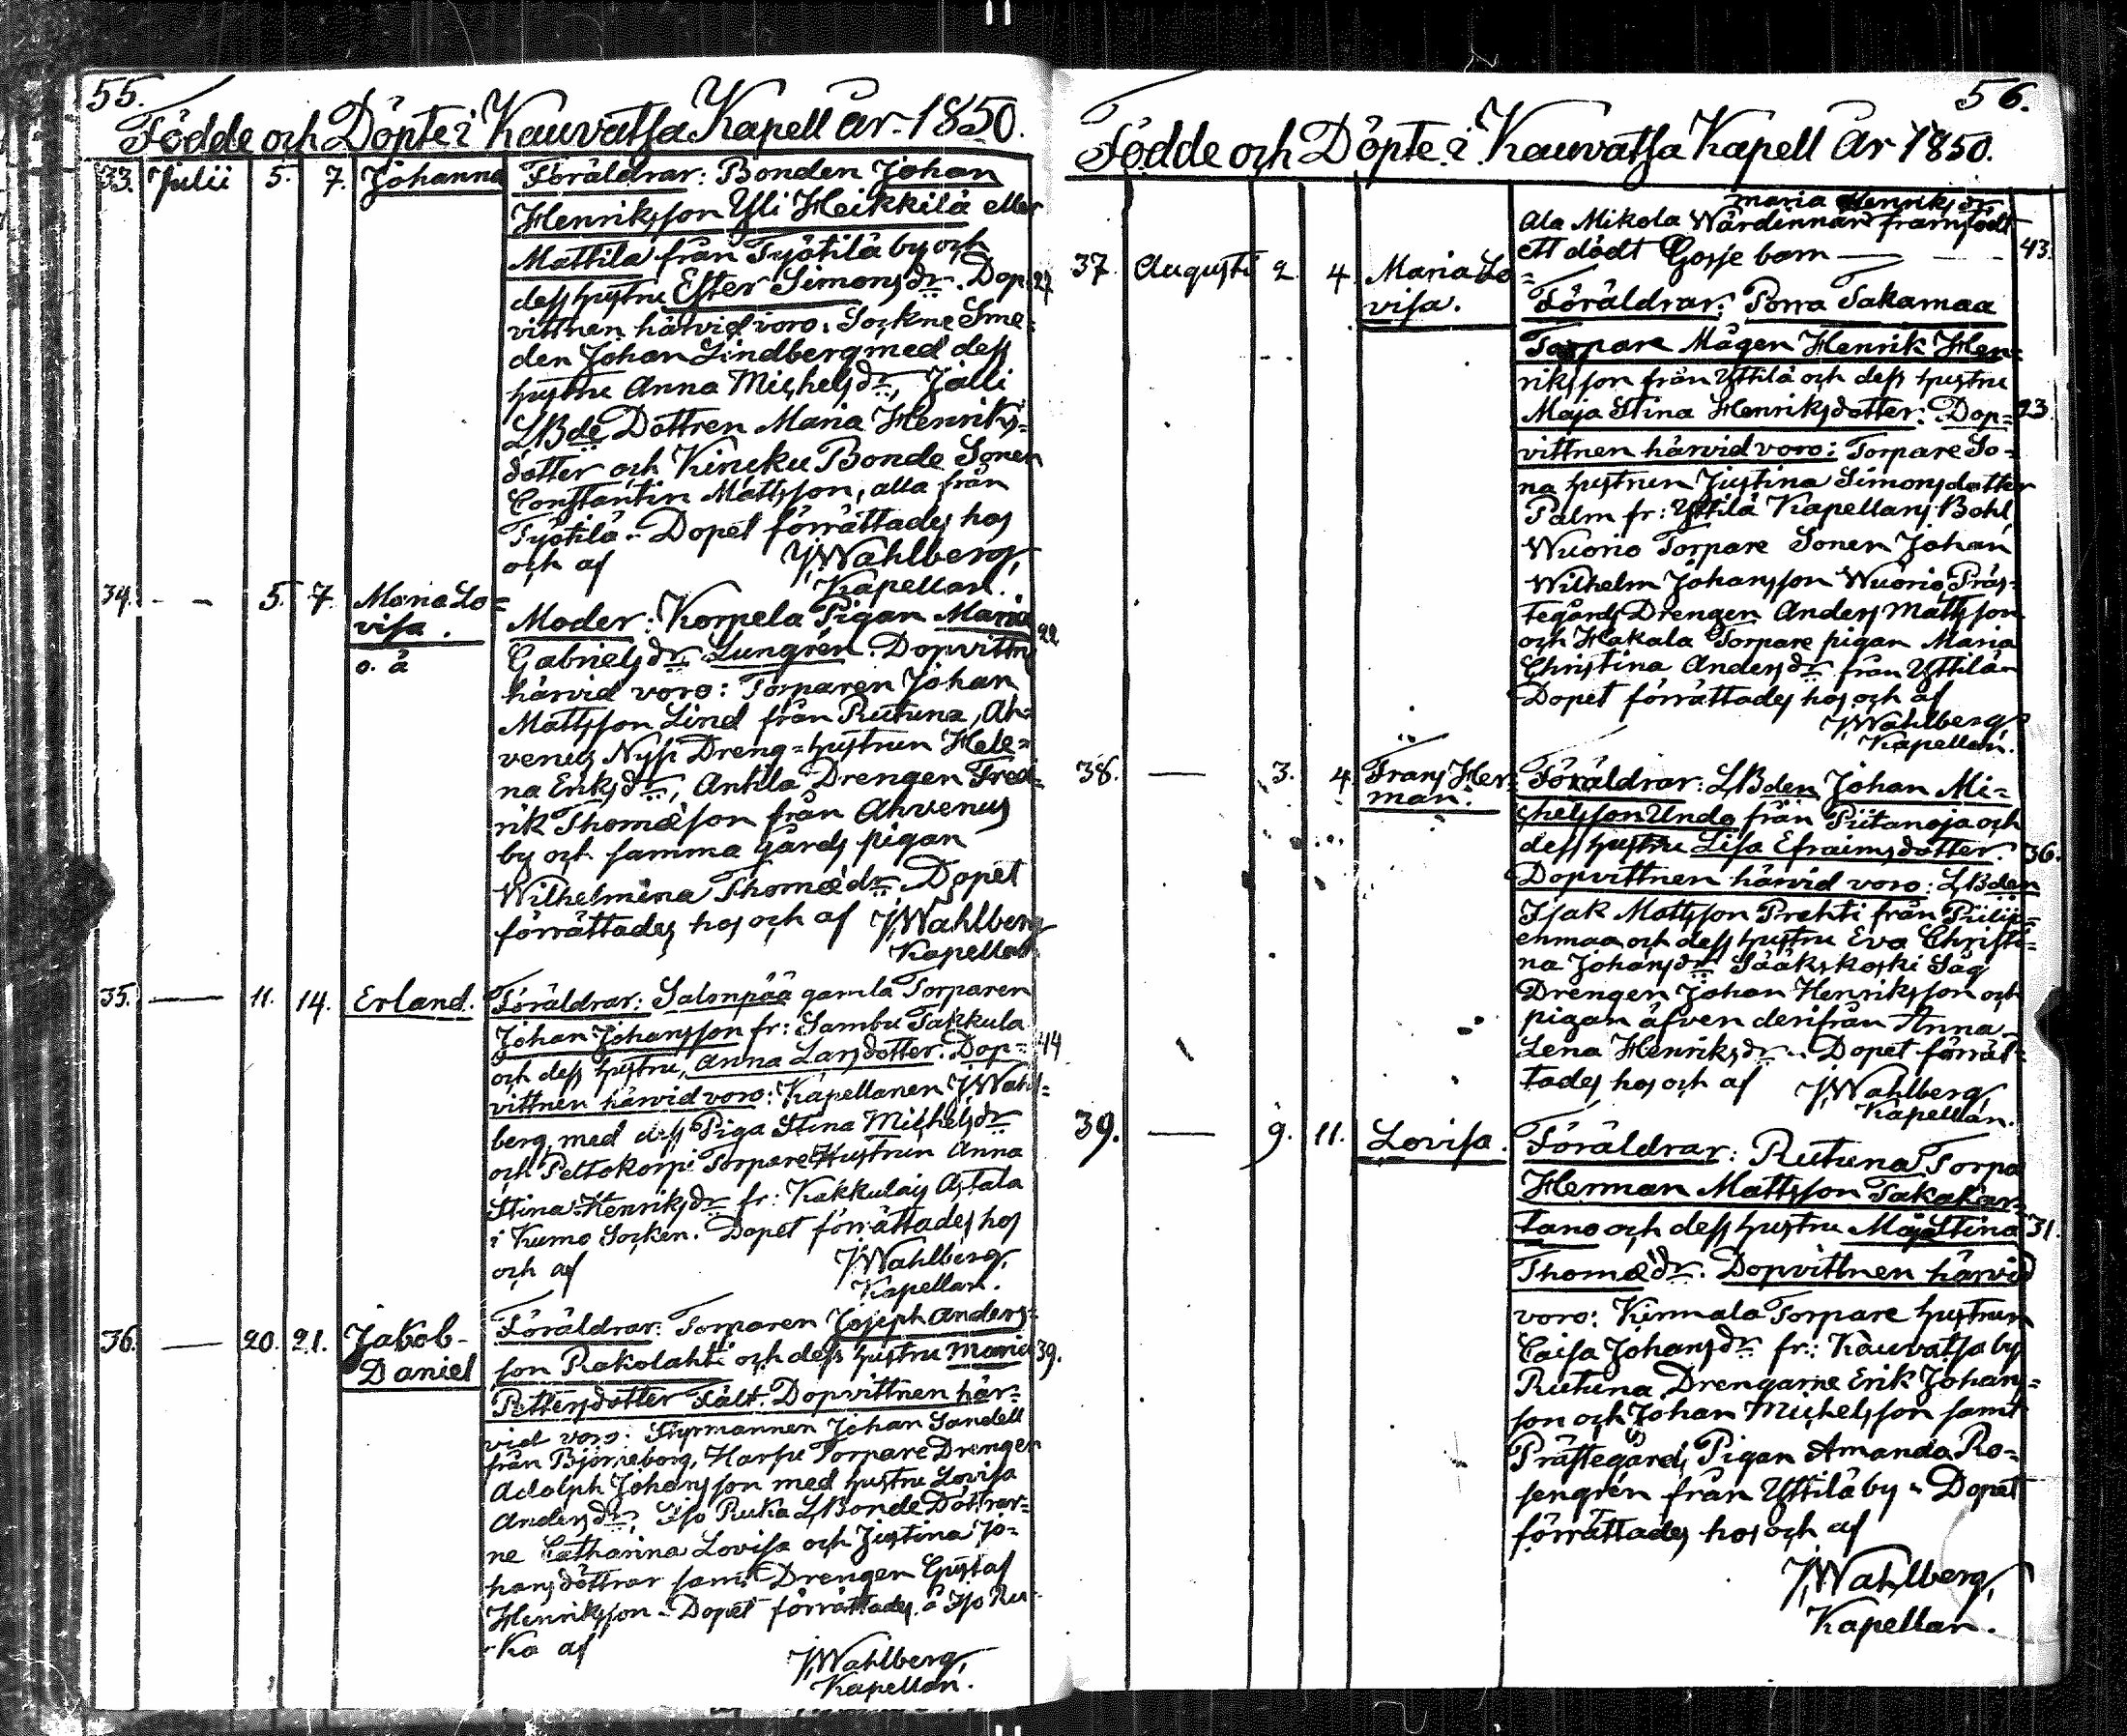 55.
Födde och Döpte i Kauvatsa Kapell år 1850.
33. Julii 5. 7. Johanna Föräldrar: Bonden Johan
Henriksson Yli Heikkilä eller
Mattila från Työtilä by och
dess hustru Ester Simonsdr. Dop- 27
vittnen härvid voro: Sockne Sme-
den Johan Lindberg med dess
hustru Anna Michelsdr, Jalli
LBde Dottren Maria Henriks-
dotter och Kincku Bonde Sonen
Constantin Mattsson, alla från
Työtilä. Dopet förrättades hos
och af JWahlberg,
Kapellan.
34. - - 5. 7. Maria Lo-
visa.
o. ä
Moder: Korpela Pigan Maria 22
Gabrielsdr Lungrén. Dopvittne
härvid voro: Torparen Johan
Mattsson Lind från Rutuna, Ah-
venus Nyss Dreng-hustrun Hele-
na Eriksdr, Anttla Drengen Fred-
rik Thomæson från Ahvenus
by och samma gårds pigan
Wilhelmina Thomædr. Dopet
förrättades hos och af JWahlberg
Kapellan
35. — 11. 14. Erland. Föräldrar: Salonpää gamla Torparen
Johan Johansson fr: Sambu Takkula
och dess hustru, Anna Larsdotter. Dop- 44
vittnen härvid voro: Kapellanen JWahl-
berg, med dess Piga Stina Michelsdr
och Peltokorpi Torpare Hustrun Anna
Stina Henriksdr fr: Kakkulais Astala
i Kumo Socken. Dopet förrättades hos
och af JWahlberg,
Kapellan.
36. — 20. 21. Jakob-
Daniel
Föräldrar: Torparen Joseph Anders-
son Rakolahti och dess hustru Maria 39.
Pettersdotter Fält. Dopvittnen här-
vid voro: Styrmannen Johan Sandell
från Björneborg, Harsu Torpare Drengen
Adolph Johansson med hustru Lovisa
Andersdr, Iso Ruka LBonde Döttrar-
ne Catharina Lovisa och Justina Jo-
hansdöttrar samt Drengen Gustaf
Henriksson. Dopet förrättades å Iso Ru-
ka af
JWahlberg,
Kapellan.
56.
Födde och Döpte i Kauvatsa Kapell År 1850.
Maria Henriksdr
Ala Mikola Wärdinnan framfödt
ett dödt Gosse barn — — 43.
37. Augusti 2. 4. Maria Lo-
visa.
Föräldrar: Porra Takamaa
Torpare Mågen Henrik Hen-
riksson från Yttilä och dess hustru
Maja Stina Henriksdotter: Dop- 23.
vittnen härvid voro: Torpare So-
na hustrun Justina Simonsdotter
Palm fr: Yttilä Kapellans Bohl,
Wuorio Torpare Sonen Johan
Wilhelm Johansson Wuorio, Präs-
tegårds Drengen Anders Mattsson
och Hakala Torpare pigan Maria
Christina Andersdr från Yttilä
Dopet förrättades hos och af
JWahlberg
Kapellan.
38. — 3. 4. Frans Her-
man.
Föräldrar: LBden Johan Mi-
chelsson Undo från Piitanoja och
dess hustru Lisa Efraimsdotter. 36.
Dopvittnen härvid voro: LBden
Isak Mattsson Prehti från Piilij-
enmaa och dess hustru Eva Christi-
na Johansdr Sääkskoski Såg
Drengen Johan Henriksson och
pigan äfven derifrån Anna
Lena Henriksdr. Dopet förrät-
tades hos och af JWahlberg,
Kapellan.
39. — 9. 11. Lovisa. Föräldrar: Rutuna Torpa
Herman Mattsson Takakar-
tano och dess hustru Maja Stina 31.
Thomædr. Dopvittnen härvid
voro: Kinnala Torpare hustrun
Caisa Johansdr fr: Kauvatsa by
Rutuna Drengarne Erik Johans-
son och Johan Michelsson samt
Prästegårds Pigan Amanda Ro-
sengrén från Yttilä by. Dopet
förrättades hos och af
JWahlberg,
Kapellan.